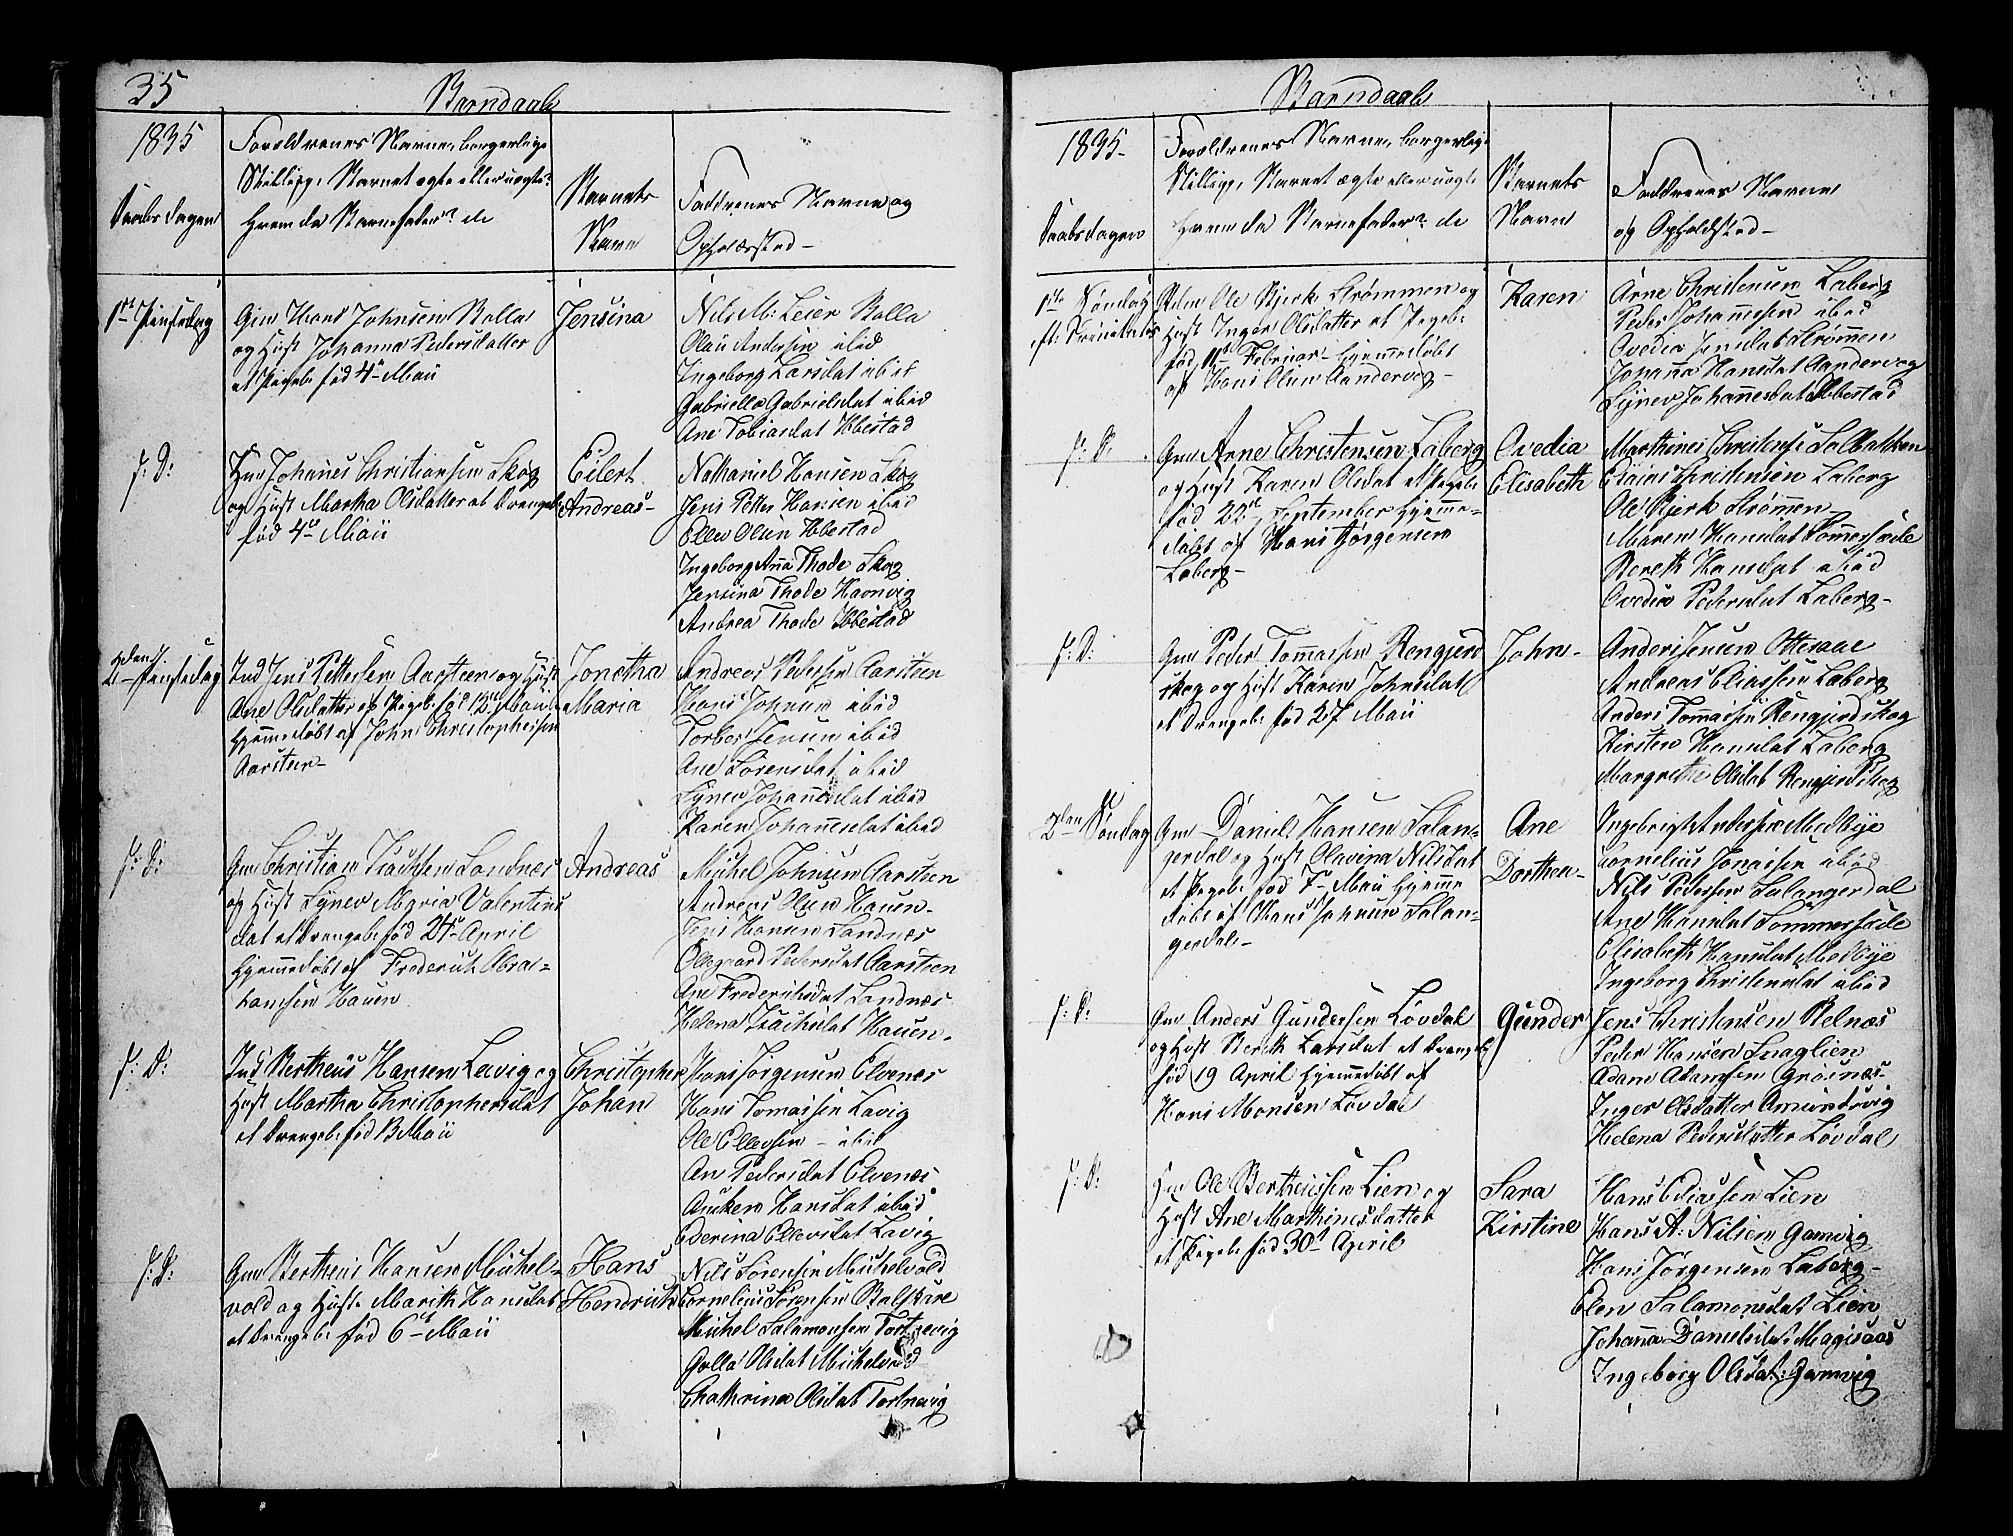 35
Barndaab
1835
Daabsdagen
Forældrenes Navne, borgerlige
Stilling, Barnet ægte eller uægte?
Hvem da Barnefader? de
Barnets
Navn
Faddrenes Navne og
Opholdssted -
1ste Pintsedag
Gm Hans Johnsen Rolla
og Hust Johanna Pedersdatter
et Pigeb: fød 4de Maii
Jensina
Nils M: Leier Rolla
Olau Andersen ibid
Ingeborg Larsdat ibid
Gabriella Gabrielsdat ibid
Ane Tobiasdat Ibbestad
s: D:
Hm Johanes Christiansen Skog
og Hust Martha Olsdatter et Drengeb:
fød 4de Maii
Eilert
Andreas -
Nathaniel Hansen Skog
Jens Petter Hansen ibid
Ellen Olsen Ibbestad
Ingeborg Ana Thode Skog
Jensina Thode Havnvig
Andrea Thode Ibbestad
2den Pintsedag
Ind Jens Pettersen Aarsteen og Hust
Ane Olsdatter et Pigeb: fød 12te Maii
hjemmedøbt af John Christophersen
Aarsteen -
Jonetha
Maria
Andreas Pedersen Aarsteen
Hans Johnsen ibid
Torber Jensen ibid
Ane Sørensdat ibid
Synev Johannesdat ibid
Karen Johannesdat ibid
s: D:
Gm Christian Isachsen Sandnes
og Hust Synev Maria Valentins
dat et Drengeb: fød 24de April
hjemmedøbt af Frederich Abra=
hamsen Hauen
Andreas
Michel Johnsen Aarsteen
Andreas Olsen Hauen -
Jens Hansen Sandnes
Ollegaard Pedersdat Aarsteen
Ane Frederichsdat Sandnæs
Helena Isachsdat Hauen -
s: D:
Ind Bertheus Hansen Leivig og
Hust Martha Christophersdat
et Drengeb: fød 13 Maii
Christopher
Johan
Hans Jørgensen Elvenes
Hans Tomassen Lavig
Ole Ellevsen - ibid
An Pedersdat Elvenes
Anken Hansdat ibid
Ederina Ellevsdat Lavig
s: D:
Gm Bertheus Hansen Michel=
vold og Hust: Marith Hansdat
et Drengeb: fød 6te Maii
Hans
Hendrich
Nils Sørensen Michelvold
Cornelius Sørensen Balskare
Michel Salamonsen
Golla Olsdat Michelvold
Chatharina Olsdat
Barndaab
1835 -
Daabsdagen
Forældrenes Navne, borgerlige
Stilling, Barnet ægte eller uægte
Hvem da Barnefader? de
Barnets
Navn
Faddrenes Navne
og Opholdsted -
1ste Søndag
eft: Trinitatis
Ole Bjerk Strømmen og
Hust Inger Olsdatter et Pigeb:
fød 11te Februar - hjemmedøbt
af Hans Olsen Aandervog -
Karen
Arne Christensen Laberg
Peder Johannesen ibid
Ovedia Jensdat Strømmen
Johanna Hansdat Aandervog
Synev Johannesdat Ibbestad
s: D:
Gm Arne Christensen Laberg
og Hust Karen Olsdat et Pigeb:
fød 22de September hjemme=
døbt af Hans Jørgensen
Laberg -
Ovedia
Elisabeth
Marthines Christens:
Esaias Christensen Laberg
Ole Bjerk Strømmen
Maren Hansdat Sommersæde
Bereth Hansdat ibid
Ovedia Pedersdat Laberg -
s: D:
Gm Peder Tomassen Rengjerd
skog og Hust Karen Johnsdat
et Drengeb: fød 27 Maii
John -
Anders Jensen Otteraae
Andreas Eliassen Laberg
Anders Tomassen Rengjerdskog
Kirsten Hansdat Laberg
Margrethe Olsdat Rengjerdskog
2den Søndag
Gm Daniel Hansen Salan=
gerdal og Hust Olavina Nilsdat
et Pigeb: fød 7de Maii hjemme
døbt af Hans Johnsen Salan=
gerdal -
Ane
Dorthea -
Ingebrigt Andersen Medbye
Cornelius Jonassen ibid
Nils Pedersen Salangerdal
Ane Hansdat Sommersæde
Elisabeth Hansdat Medbye
Ingeborg Christensdat ibid
s: D:
Gm Anders Gundersen Løvdal
og Hust Berith Larsdat et Drengeb:
fød 19 April hjemmedøbt af
Hans Monsen Løvdal
Gunder
Jens Christensen Belnæs
Peder Hansen Snaglien
Adam Adamsen Grøsnæs
Inger Olsdatter Amundsvig
Helena Pedersdatter Løvdal
s: D:
Hm Ole Bertheussen Lien og
Hust Ane Marthinesdatter
et Pigeb: fød 30te April
Sara
Kirstine
Hans Ediassen Lien
Hans A: Nilsen Gamvig
Hans Jørgensen Laberg -
Elen Salamonsdat Lien
Johanna Danielsdat: Magisaas
Ingeborg Olsdat: Gamvig